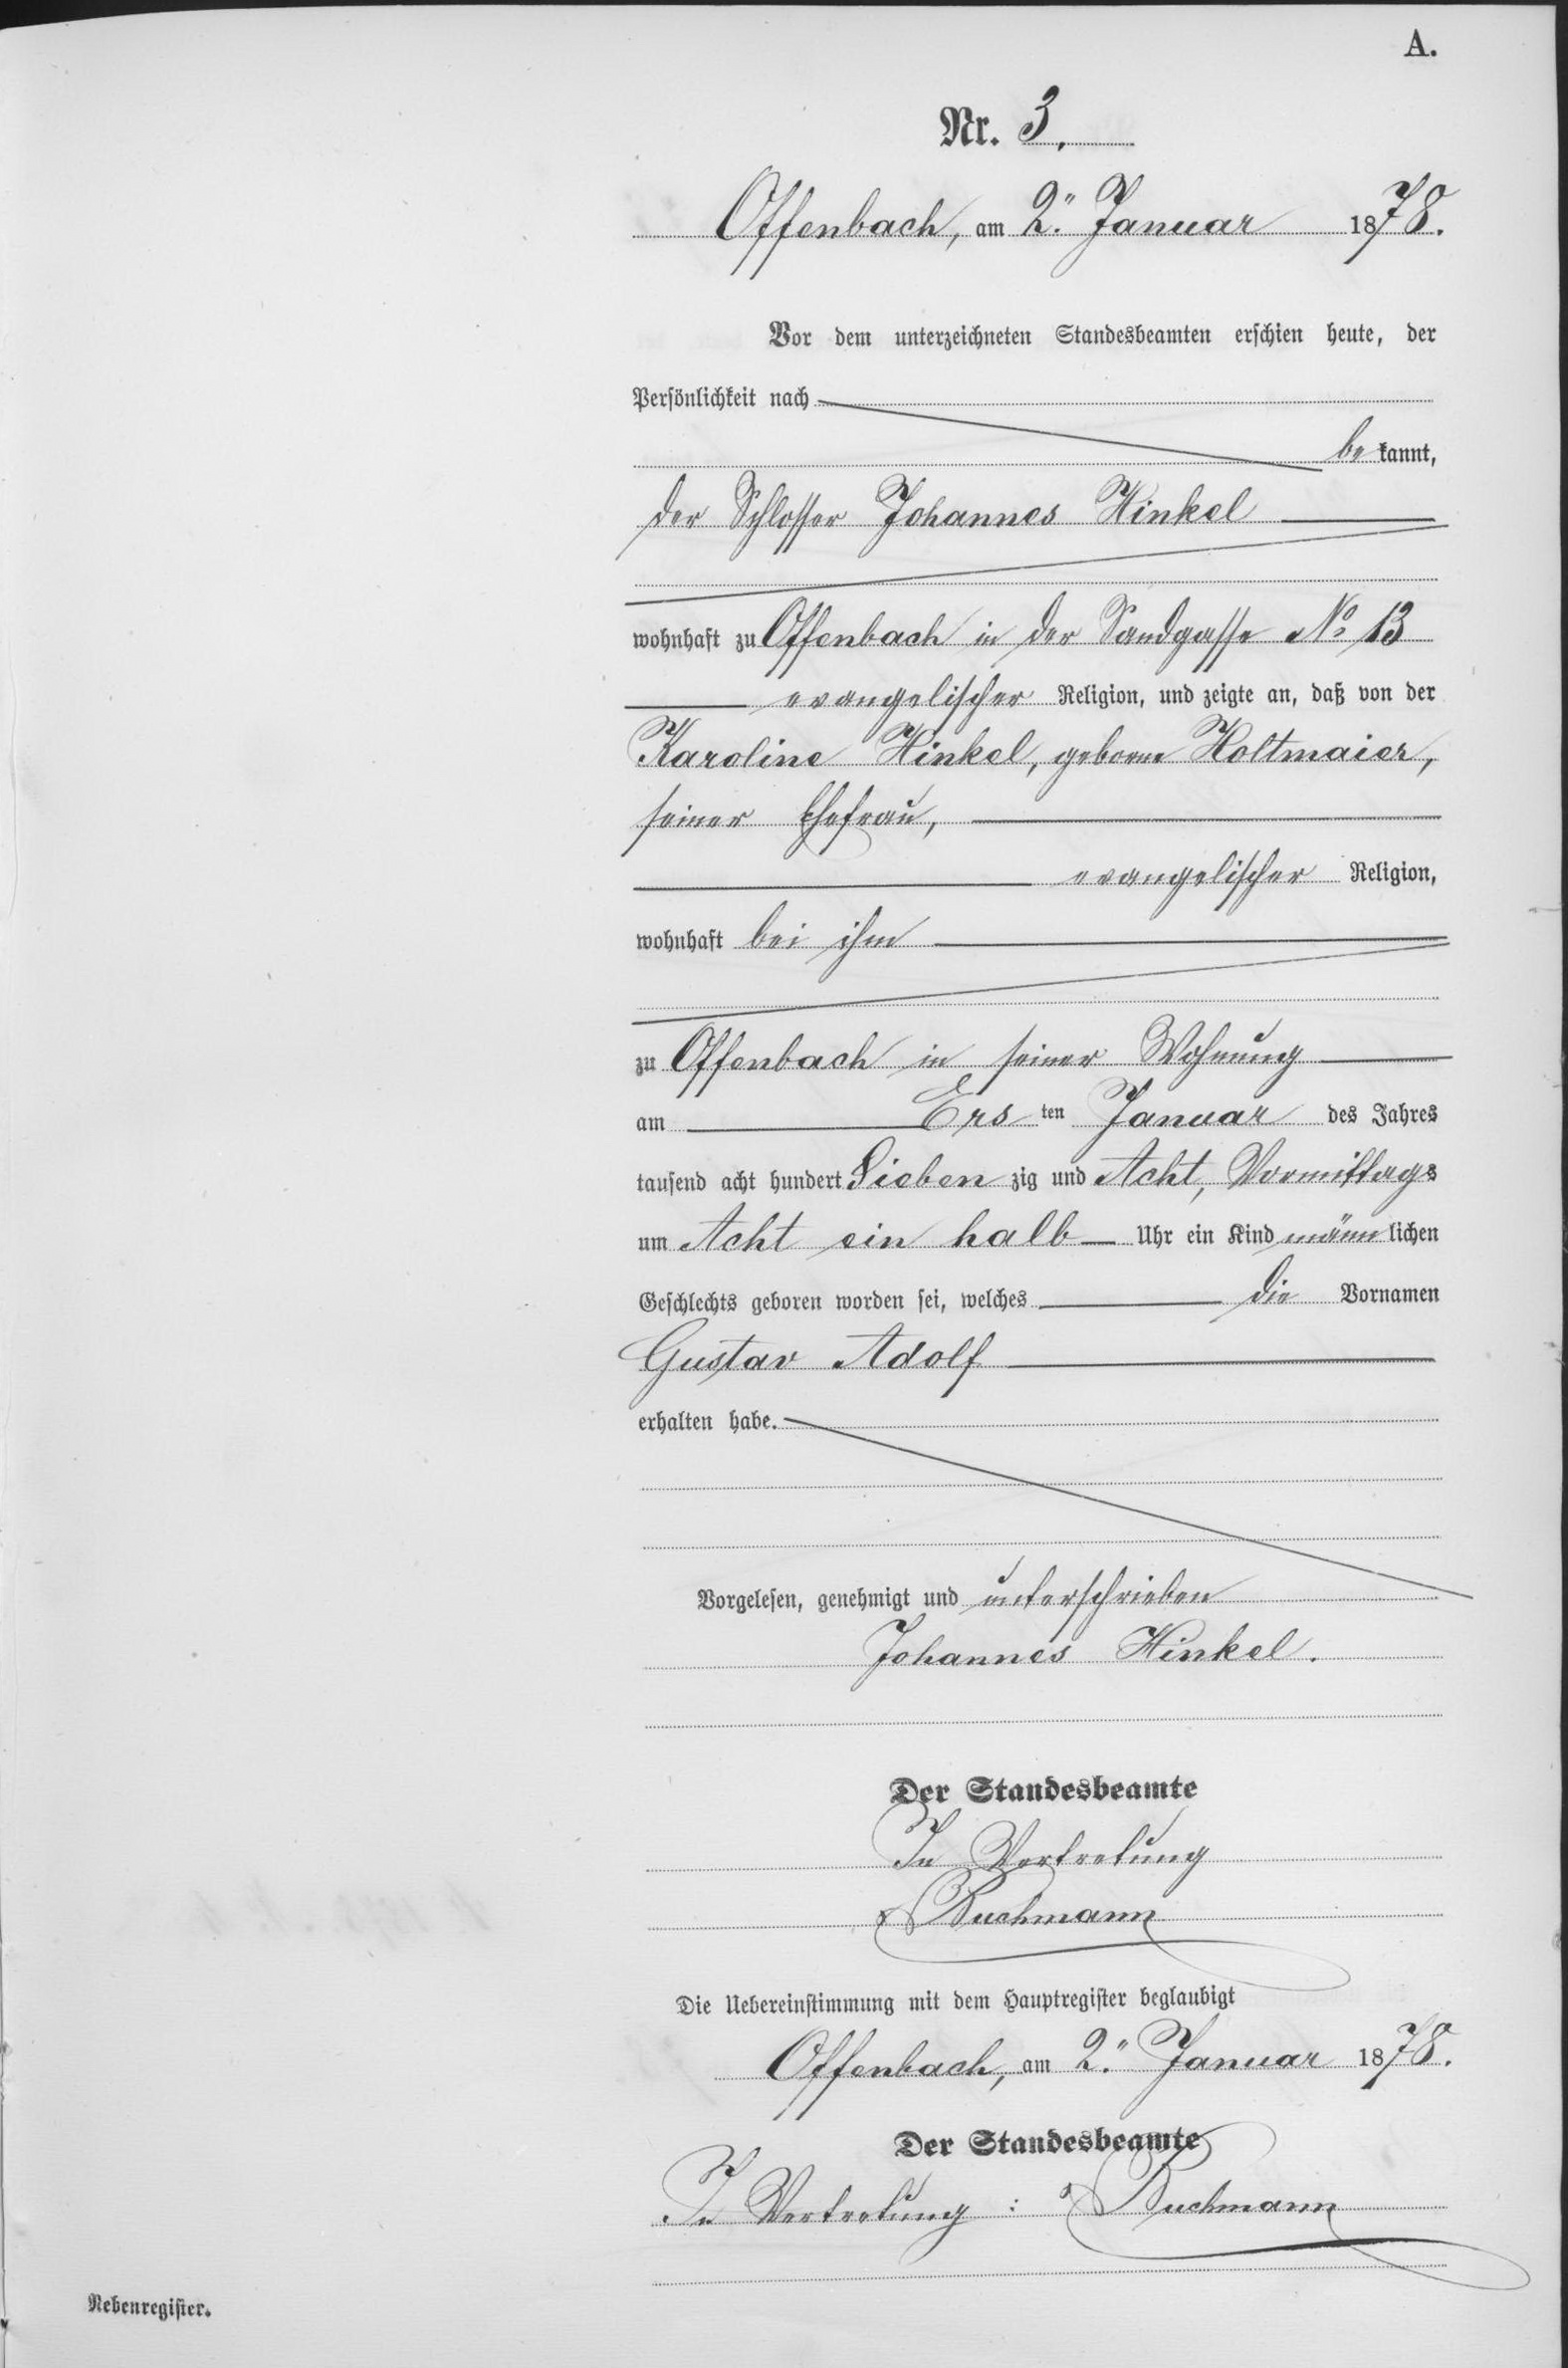 A.
Nr. 3.
Offenbach, am 2ⁿ. Januar 1878.
Vor dem unterzeichneten Standesbeamten erschien heute, der
Persönlichkeit nach
bekannt,
der Schlosser Johannes Hinkel
wohnhaft zu Offenbach in der Sandgasse No 13
evangelischer Religion, und zeigte an, daß von der
Karoline Hinkel, geborne Holtmaier,
seiner Ehefrau,
evangelischer Religion,
wohnhaft bei ihm
zu Offenbach in seiner Wohnung
am Ersten Januar des Jahres
tausend acht hundert Siebenzig und Acht, Vormittags
um Acht ein halb Uhr ein Kind männlichen
Geschlechts geboren worden sei, welches die Vornamen
Gustav Adolf
erhalten habe.
Vorgelesen, genehmigt und unterschrieben
Johannes Hinkel.
Der Standesbeamte
In Vertretung
Buchmann
Die Uebereinstimmung mit dem Hauptregister beglaubigt
Offenbach, am 2ⁿ. Januar 1878.
Der Standesbeamte
In Vertretung : Buchmann
Nebenregister.